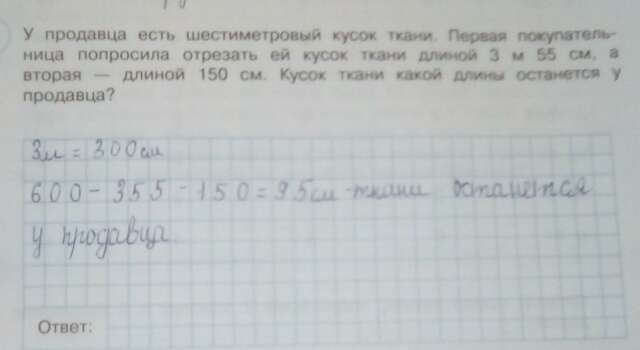 У продавца есть шестиметровый кусок ткани. Первая покупатель-
ница попросила отрезать ей кусок ткани длиной 3 м 55 см, а
вторая — длиной 150 см. Кусок ткани какой длины останется у
продавца?
3м = 300см
600 - 355 - 150 = 95см - ткани останется
у продавца
Ответ: